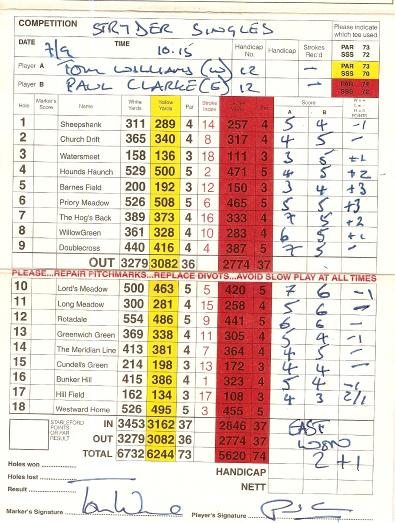 COMPETITION STRYDER SINGLES Please indicate which tee used
DATE 7/9 TIME 10.15 Handicap No. Handicap Strokes Rec'd PAR 73 SSS 72
Player A TOM WILLIAMS (W) 12 - PAR 73 SSS 70
Player B PAUL CLARKE (E) 12 - PAR 74 SSS 72
Hole Marker's Score Name White Yards Yellow Yards Par Stroke Index Par Score A B POINTS
1 Sheepshank 311 289 4 14 257 4 5 4 -1
2 Church Drift 365 340 4 8 317 4 4 5 -
3 Watersmeet 158 136 3 18 111 3 3 +1
4 Hounds Haunch 529 500 5 2 471 5 4 6 +2
5 Barnes Field 200 192 3 12 150 3 3 4 +3
6 Priory Meadow 526 508 5 6 465 5 5 5 +3
7 The Hog's Back 389 373 4 16 333 4 7 5 +2
8 WillowGreen 361 328 4 10 283 4 6 5 +1
9 Doublecross 440 416 4 4 387 5 7 5 -
OUT 3279 3082 36 2774 37
PLEASE...REPAIR PITCHMARKS...REPLACE DIVOTS...AVOID SLOW PLAY AT ALL TIMES
10 Lord's Meadow 500 463 5 5 420 5 7 6 -1
11 Long Meadow 300 281 4 15 258 4 5 6 -
12 Rotadale 554 486 5 9 441 5 6 6 -
13 Greenwich Green 369 338 4 11 305 4 5 4 -1
14 The Meridian Line 413 381 4 7 364 4 4 5 -
15 Cundells Green 214 198 3 13 172 3 4 4 -
16 Bunker Hill 415 386 4 1 323 4 5 4 -1
17 Hill Field 162 134 3 17 108 3 4 3 2/1
18 Westward Home 526 495 5 3 455 5
STABLEFORD POINTS OR PAR RESULT
IN 3453 3162 37 2846 37 EAST
OUT 3279 3082 36 2774 37 WON
TOTAL 6732 6244 73 5620 74 2 + 1
Holes won HANDICAP
Holes lost NETT
Result
Marker's Signature Player's Signature